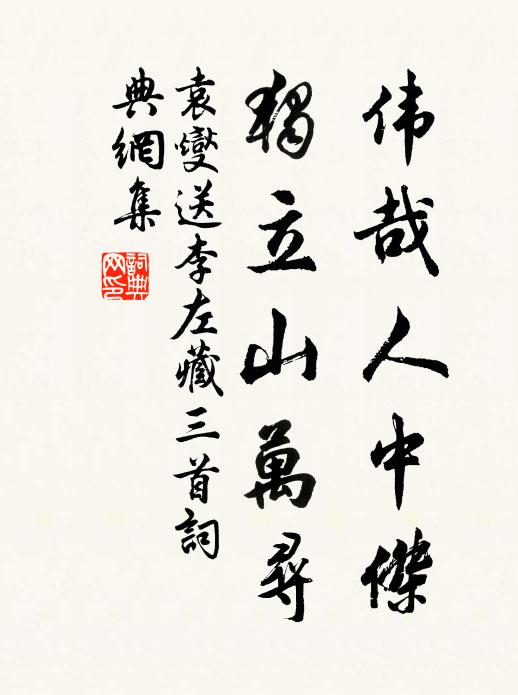 伟哉人中傑
獨立山萬尋
袁燮送李左藏三首詞
典網集
詞典网印